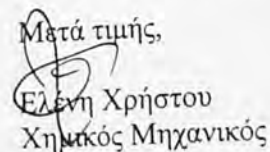 Μετά τιμής,
Ελένη Χρήστου
Χημικός Μηχανικός